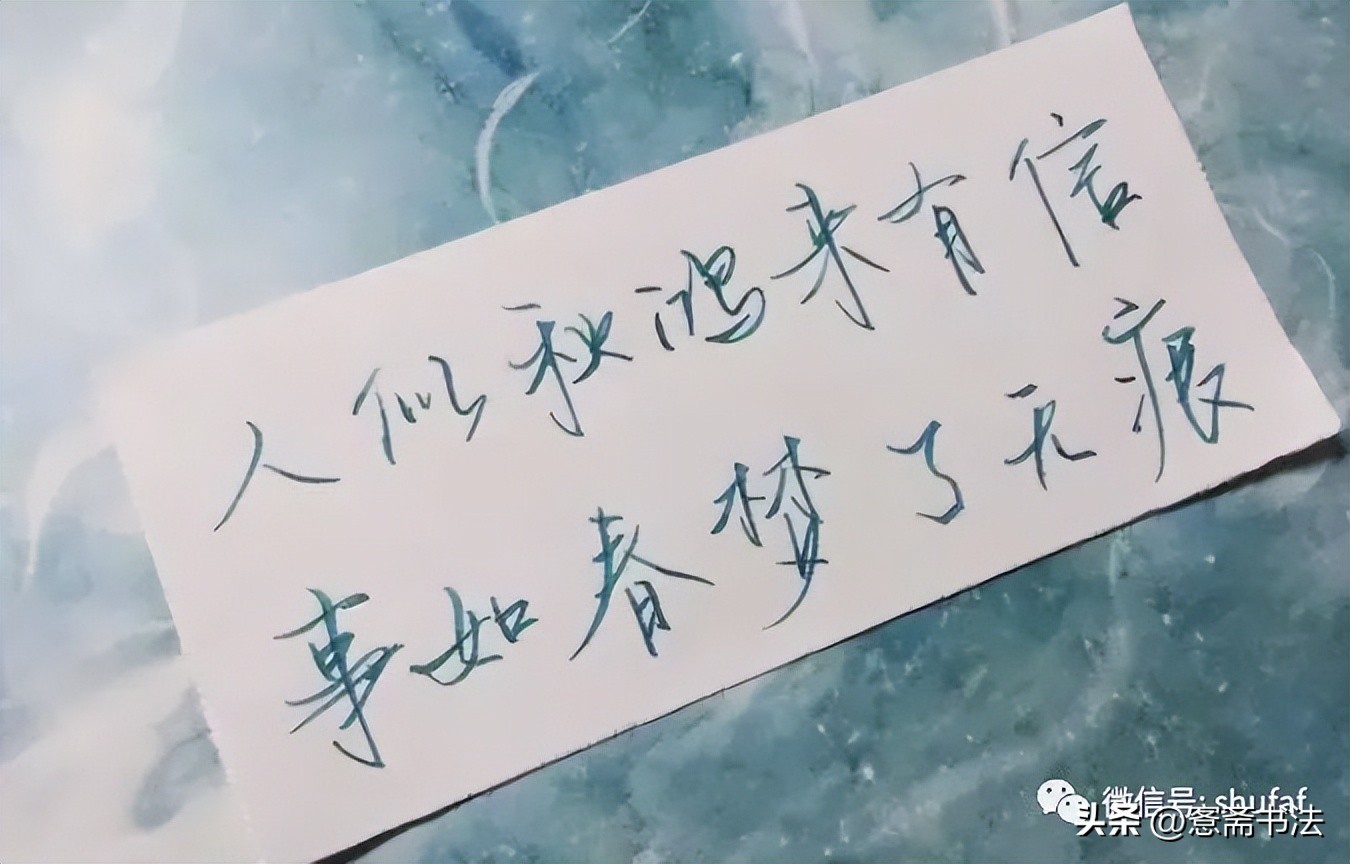 人似秋鸿来有信
事如春梦了无痕
微信号: shufaf
头条 @窓斋书法